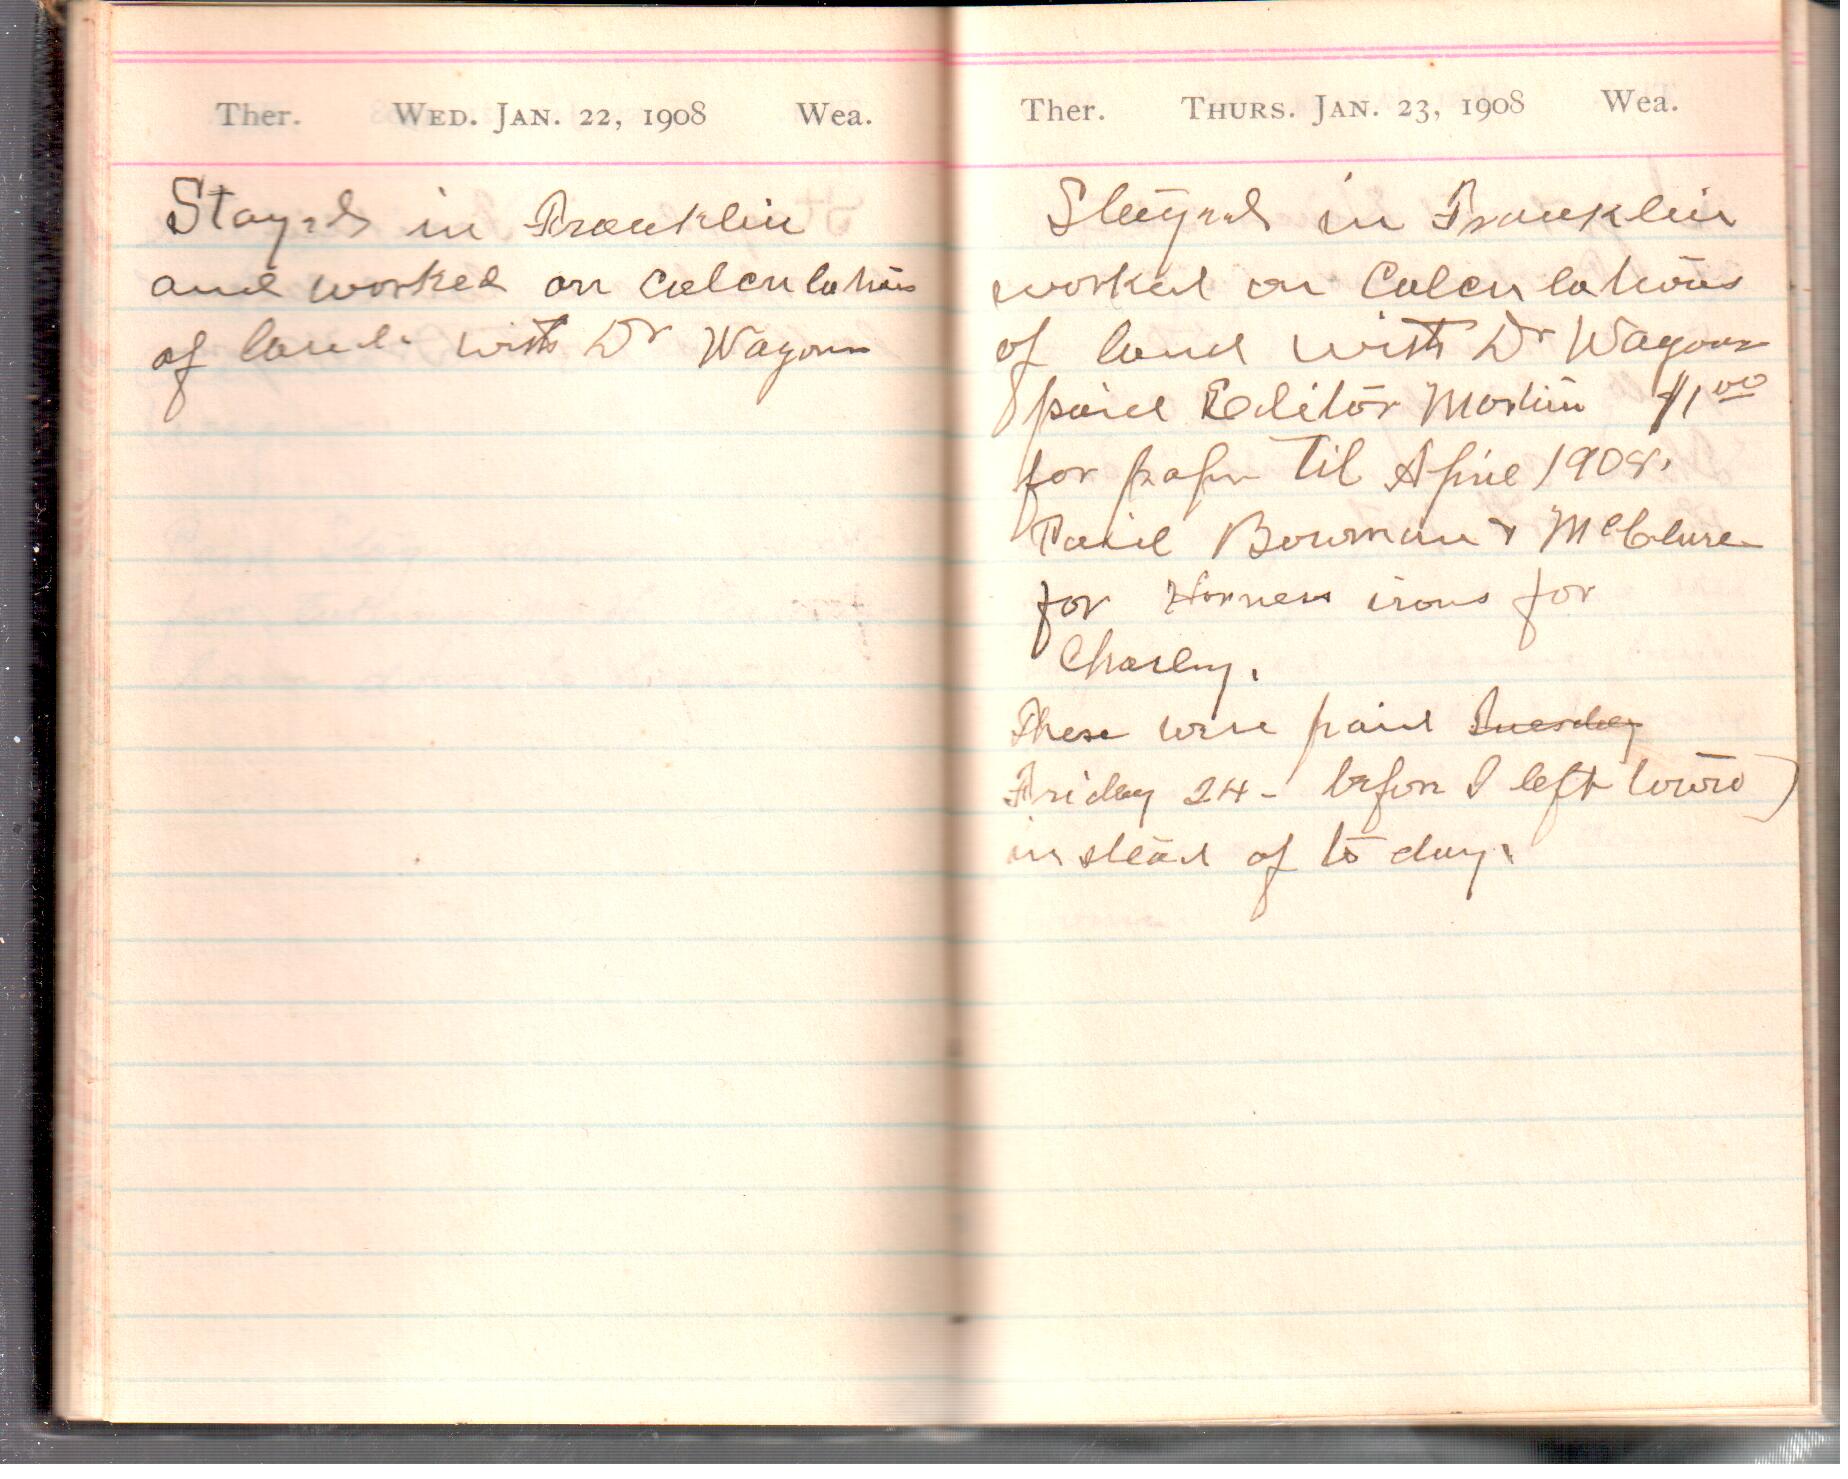 Ther. Wed. Jan. 22, 1908 Wea.
Stayed in Franklin
and worked on calculations
of land with Dr Wagoner
Ther. Thurs. Jan. 23, 1908 Wea.
Stayed in Franklin
worked on Calculations
of land with Dr Wagoner
paid Editor Martin $1 00
for paper Til April 1908.
Paid Bowman & McClure
for Harness irons for
Charley.
These were paid Tuesday
Friday 24 - before I left town)
in stead of to day.